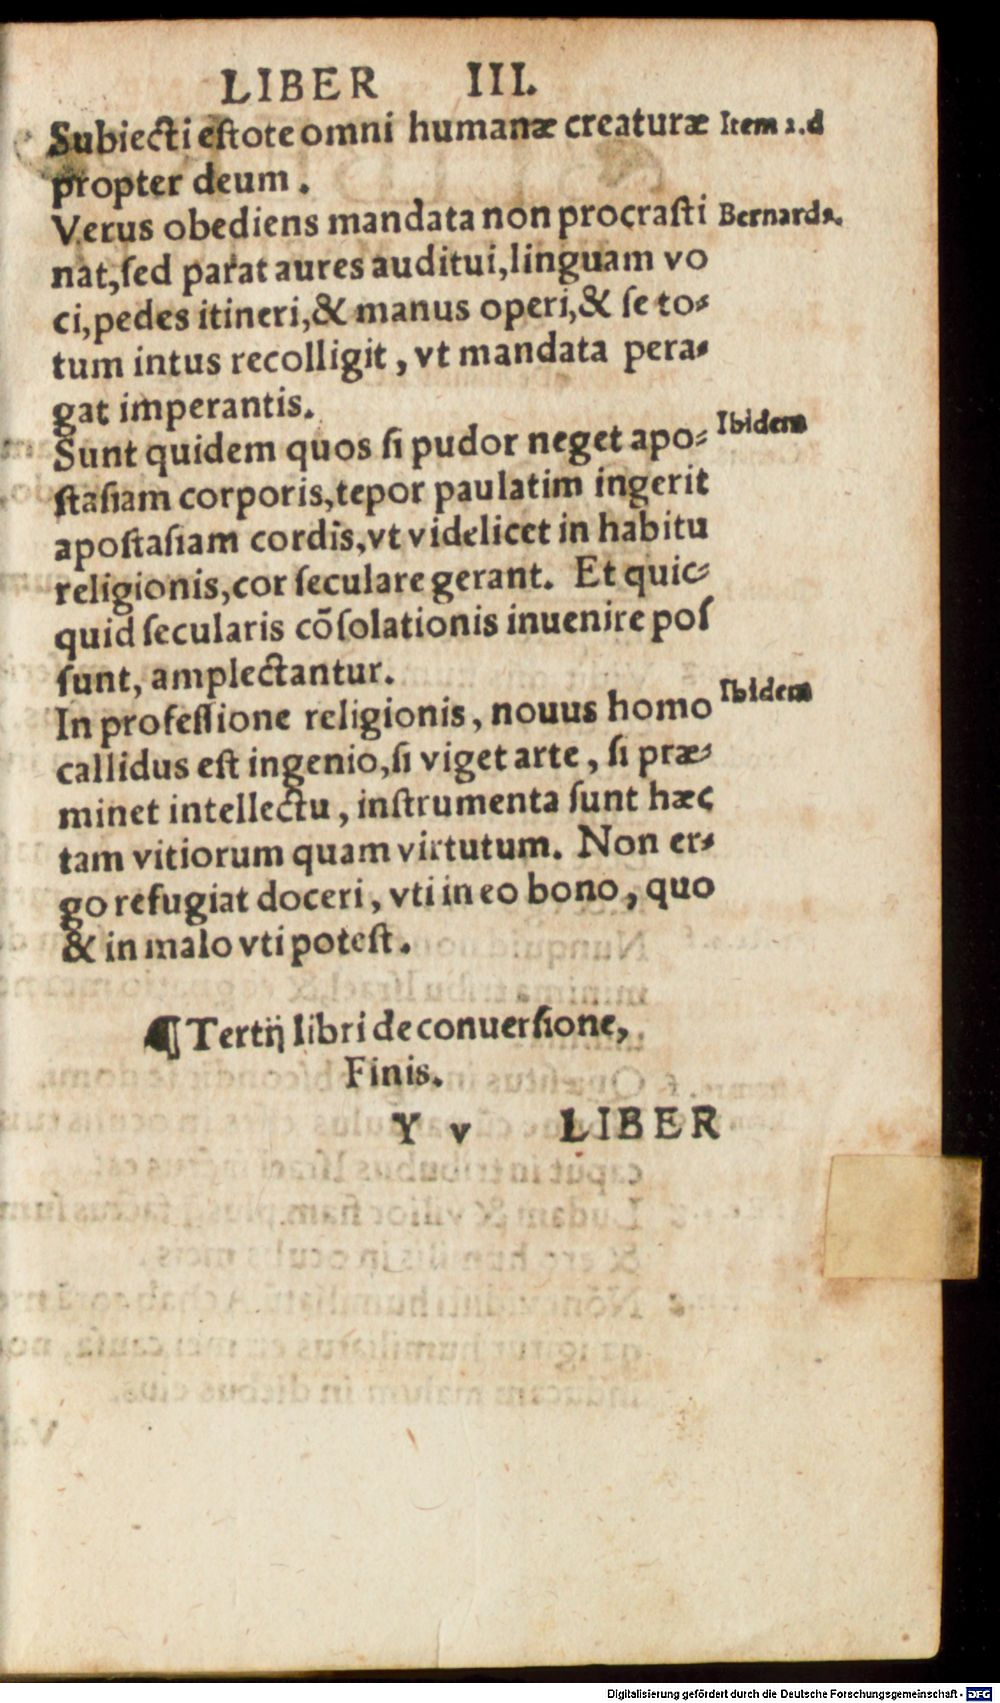 LIBER III.
Subiecti estote omni humanæ creaturæ Item 2.d
propter deum.
Verus obediens mandata non procrasti Bernard⁹.
nat, sed parat aures auditui, linguam vo
ci, pedes itineri, & manus operi, & se to-
tum intus recolligit, vt mandata pera-
gat imperantis.
Sunt quidem quos si pudor neget apo- Ibidem
stasiam corporis, tepor paulatim ingerit
apostasiam cordis, vt videlicet in habitu
religionis, cor seculare gerant. Et quic-
quid secularis cōsolationis inuenire pos
sunt, amplectantur.
In professione religionis, nouus homo Ibidem
callidus est ingenio, si viget arte, si præ-
minet intellectu, instrumenta sunt hæc
tam vitiorum quam virtutum. Non er-
go refugiat doceri, vti in eo bono, quo
& in malo vti potest.
¶ Tertij libri de conuersione,
Finis.
Y v LIBER
Digitalisierung gefördert durch die Deutsche Forschungsgemeinschaft - DFG